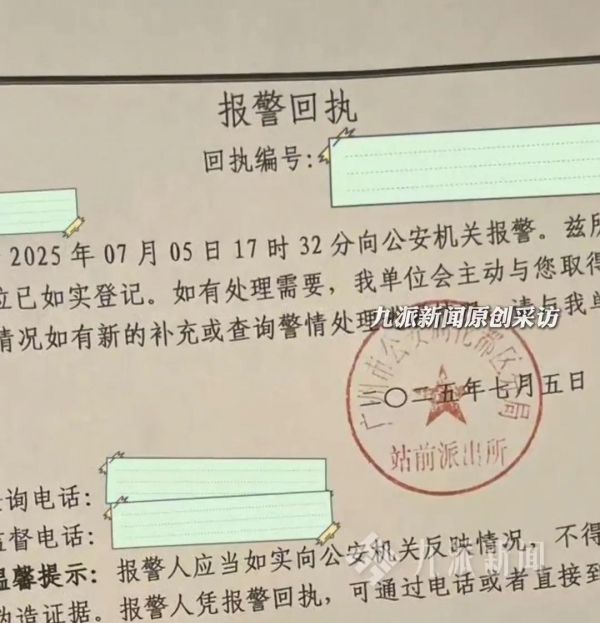 报警回执
回执编号:
2025年07月05日17时32分向公安机关报警。兹所
位已如实登记。如有处理需要，我单位会主动与您取得
情况如有新的补充或查询警情处理 请与我单
九派新闻原创采访
二〇二五年七月五日
广州市公安局花都区分局
站前派出所
查询电话:
监督电话:
温馨提示: 报警人应当如实向公安机关反映情况，不得
伪造证据。报警人凭报警回执，可通过电话或者直接到
九派新闻